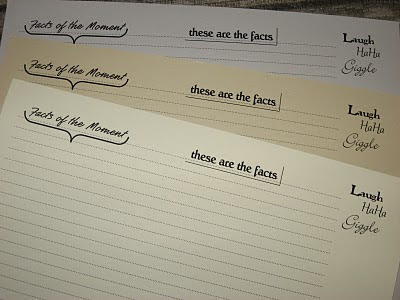 Facts of the Moment
these are the facts
Laugh
HaHa
Giggle
Facts of the Moment
these are the facts
Laugh
HaHa
Giggle
Facts of the Moment
these are the facts
Laugh
HaHa
Giggle